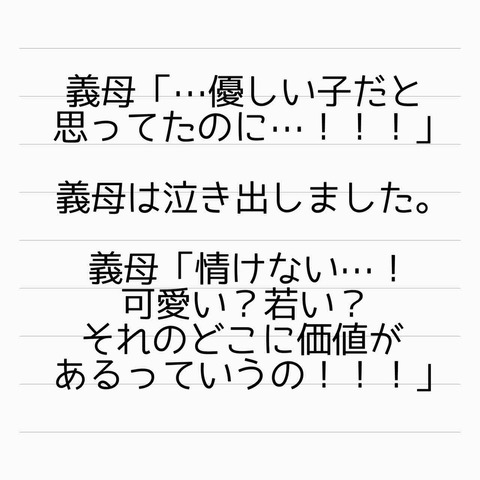 義母「…優しい子だと
思ってたのに…！！！」
義母は泣き出しました。
義母「情けない…！
可愛い？若い？
それのどこに価値が
あるっていうの！！！」